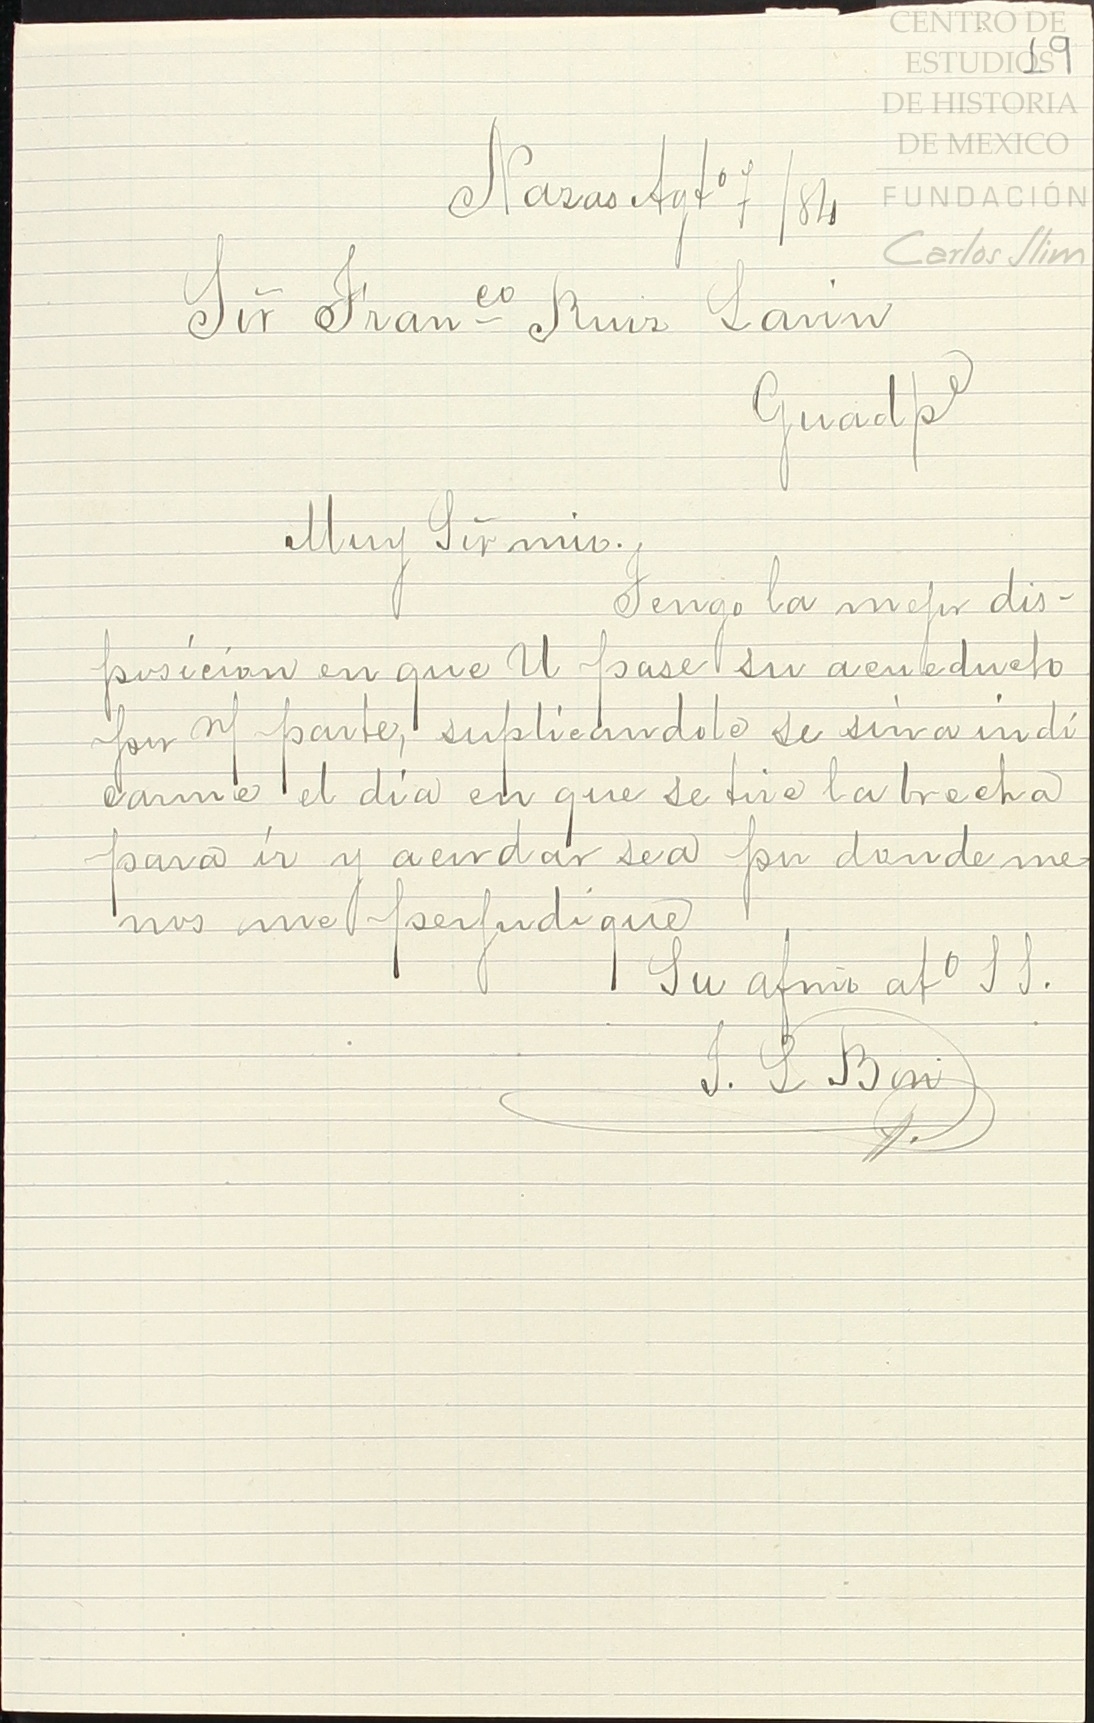 CENTRO DE
ESTUDIOS
DE HISTORIA
DE MEXICO
FUNDACIÓN
Carlos Slim
19
Nazas Agto 7/84
Sõr Franco Ruiz Lavin
Guadpe
Muy Sõr mio.,
Tengo la mejor dis-
posicion en que U pase su acueducto
por mi parte, suplicandole se sirva indi
carme el día en que se tire la brecha
para ír y acordar sea por donde me-
nos me perjudique
Su afmo ato S S.
J. L